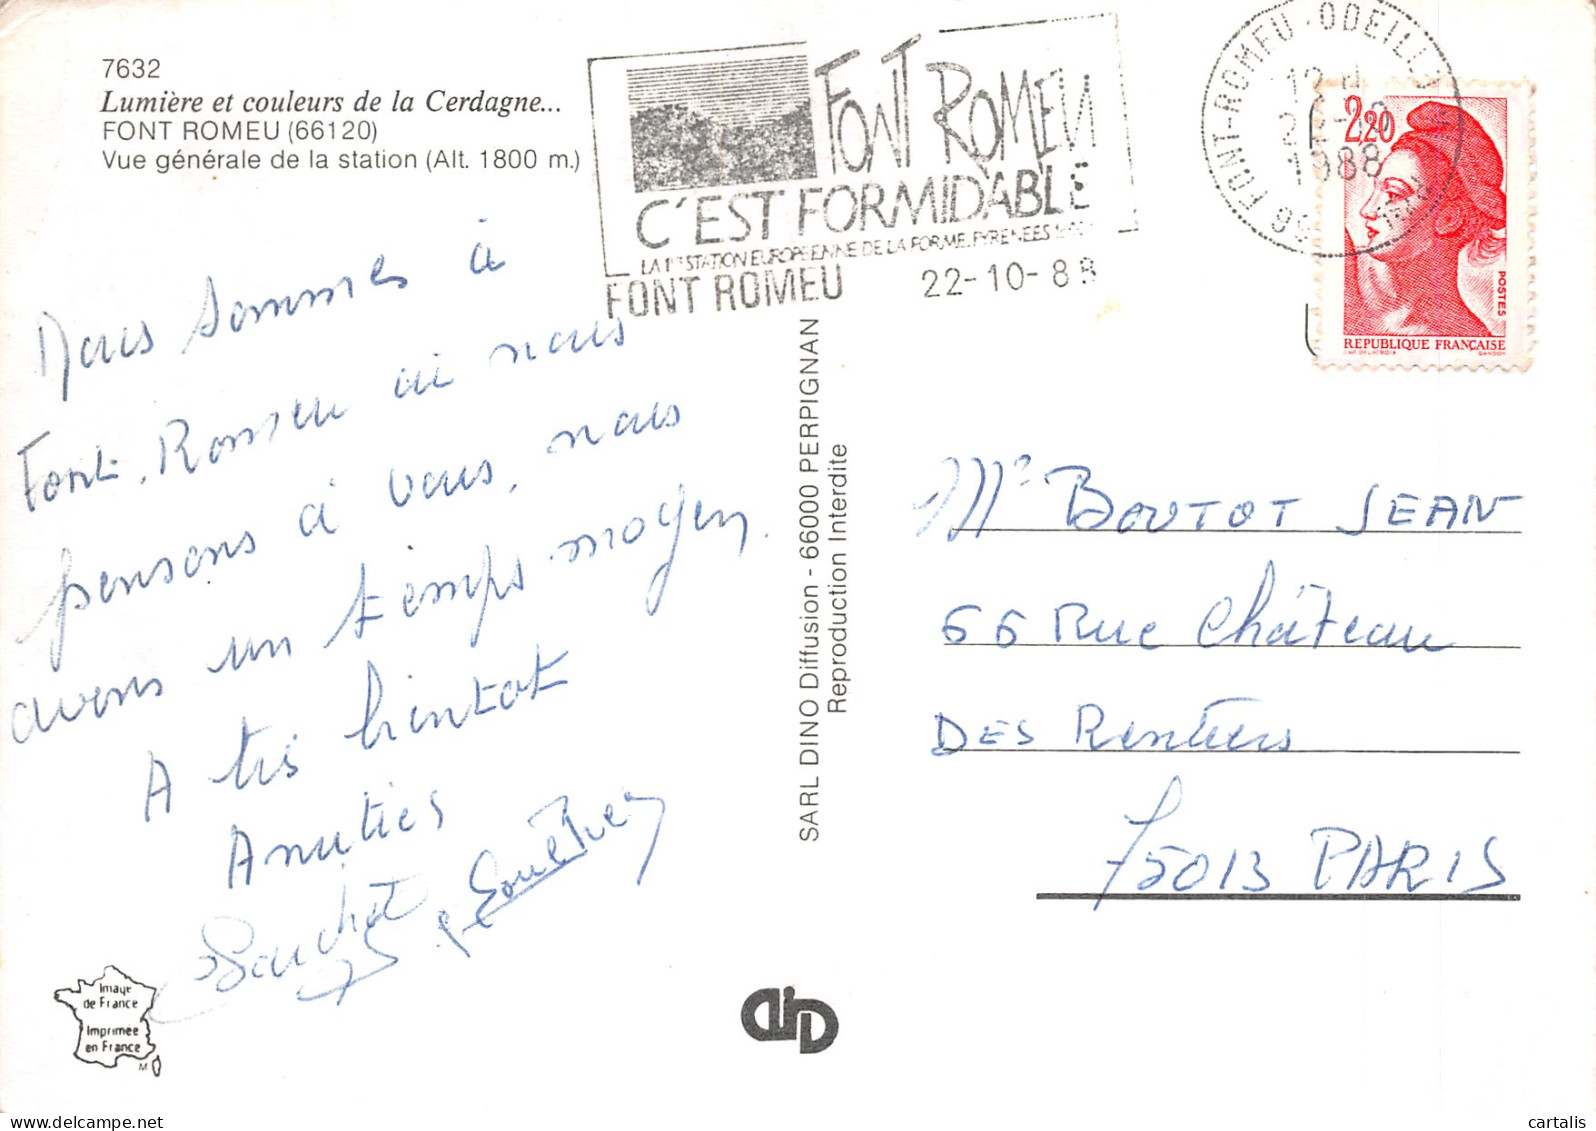 7632
Lumière et couleurs de la Cerdagne...
FONT ROMEU (66120)
Vue générale de la station (Alt. 1800 m.)
FONT ROMEU
C'EST FORMIDABLE
LA 1re STATION EUROPEENNE DE LA FORME. PYRENEES
FONT ROMEU 22-10-88
66 FONT-ROMEU-ODEILLO
12 H
1988
2,20
POSTES
REPUBLIQUE FRANÇAISE
GANDON
Nous sommes à
Font. Romeu où nous
pensons à vous, nous
avons un temps moyen.
A très bientot
Amitiés
SARL DINO Diffusion - 66000 PERPIGNAN
Reproduction Interdite
Mr BOUTOT JEAN
66 Rue Château
DES Rentiers
75013 PARIS
Image
de France
Imprimée
en France